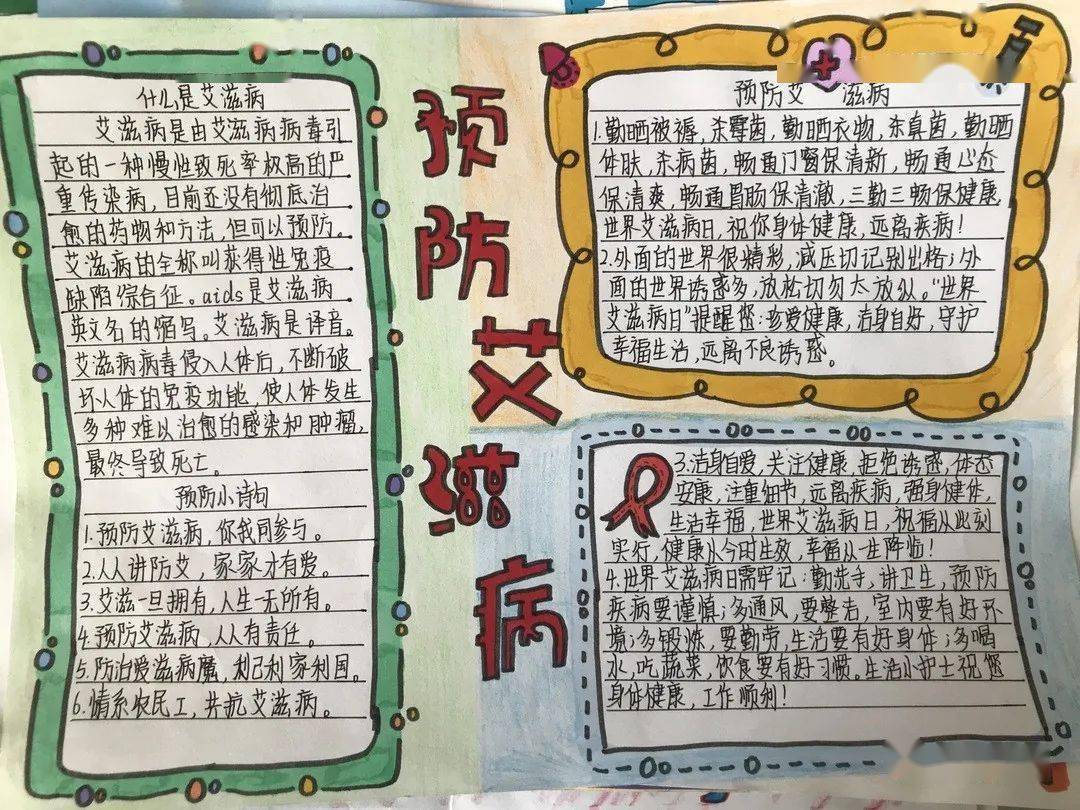 什么是艾滋病
艾滋病是由艾滋病病毒引
起的一种慢性致死率极高的严
重传染病，目前还没有彻底治
愈的药物和方法，但可以预防。
艾滋病的全称叫获得性免疫
缺陷综合征。aids是艾滋病
英文名的缩写。艾滋病是译音。
艾滋病病毒侵入人体后，不断破
坏人体的免疫功能，使人体发生
多种难以治愈的感染和肿瘤，
最终导致死亡。
预防小诗句
1.预防艾滋病，你我同参与。
2.人人讲防艾，家家才有爱。
3.艾滋一旦拥有，人生一无所有。
4.预防艾滋病，人人有责任。
5.防治爱滋病魔，利己利家利国。
6.情系农民工，共抗艾滋病。
预防艾滋病
预防艾滋病
1.勤晒被褥，杀霉菌，勤晒衣物，杀真菌，勤晒
体肤，杀病菌，畅通门窗保清新，畅通心态
保清爽，畅通胃肠保清澈，三勤三畅保健康，
世界艾滋病日，祝你身体健康，远离疾病！
2.外面的世界很精彩，减压切记别出格；外
面的世界诱惑多，放松切勿太放纵。“世界
艾滋病日”提醒您：珍爱健康，洁身自好，守护
幸福生活，远离不良诱惑。
3.洁身自爱，关注健康，拒绝诱惑，体态
安康，注重细节，远离疾病，强身健体，
生活幸福，世界艾滋病日，祝福从此刻
实行，健康从今时生效，幸福从一生降临！
4.世界艾滋病日需牢记：勤洗手，讲卫生，预防
疾病要谨慎；多通风，要整洁，室内要有好环
境；多锻炼，要勤劳，生活要有好身体；多喝
水，吃蔬菜，饮食要有好习惯。生活小护士祝您
身体健康，工作顺利！